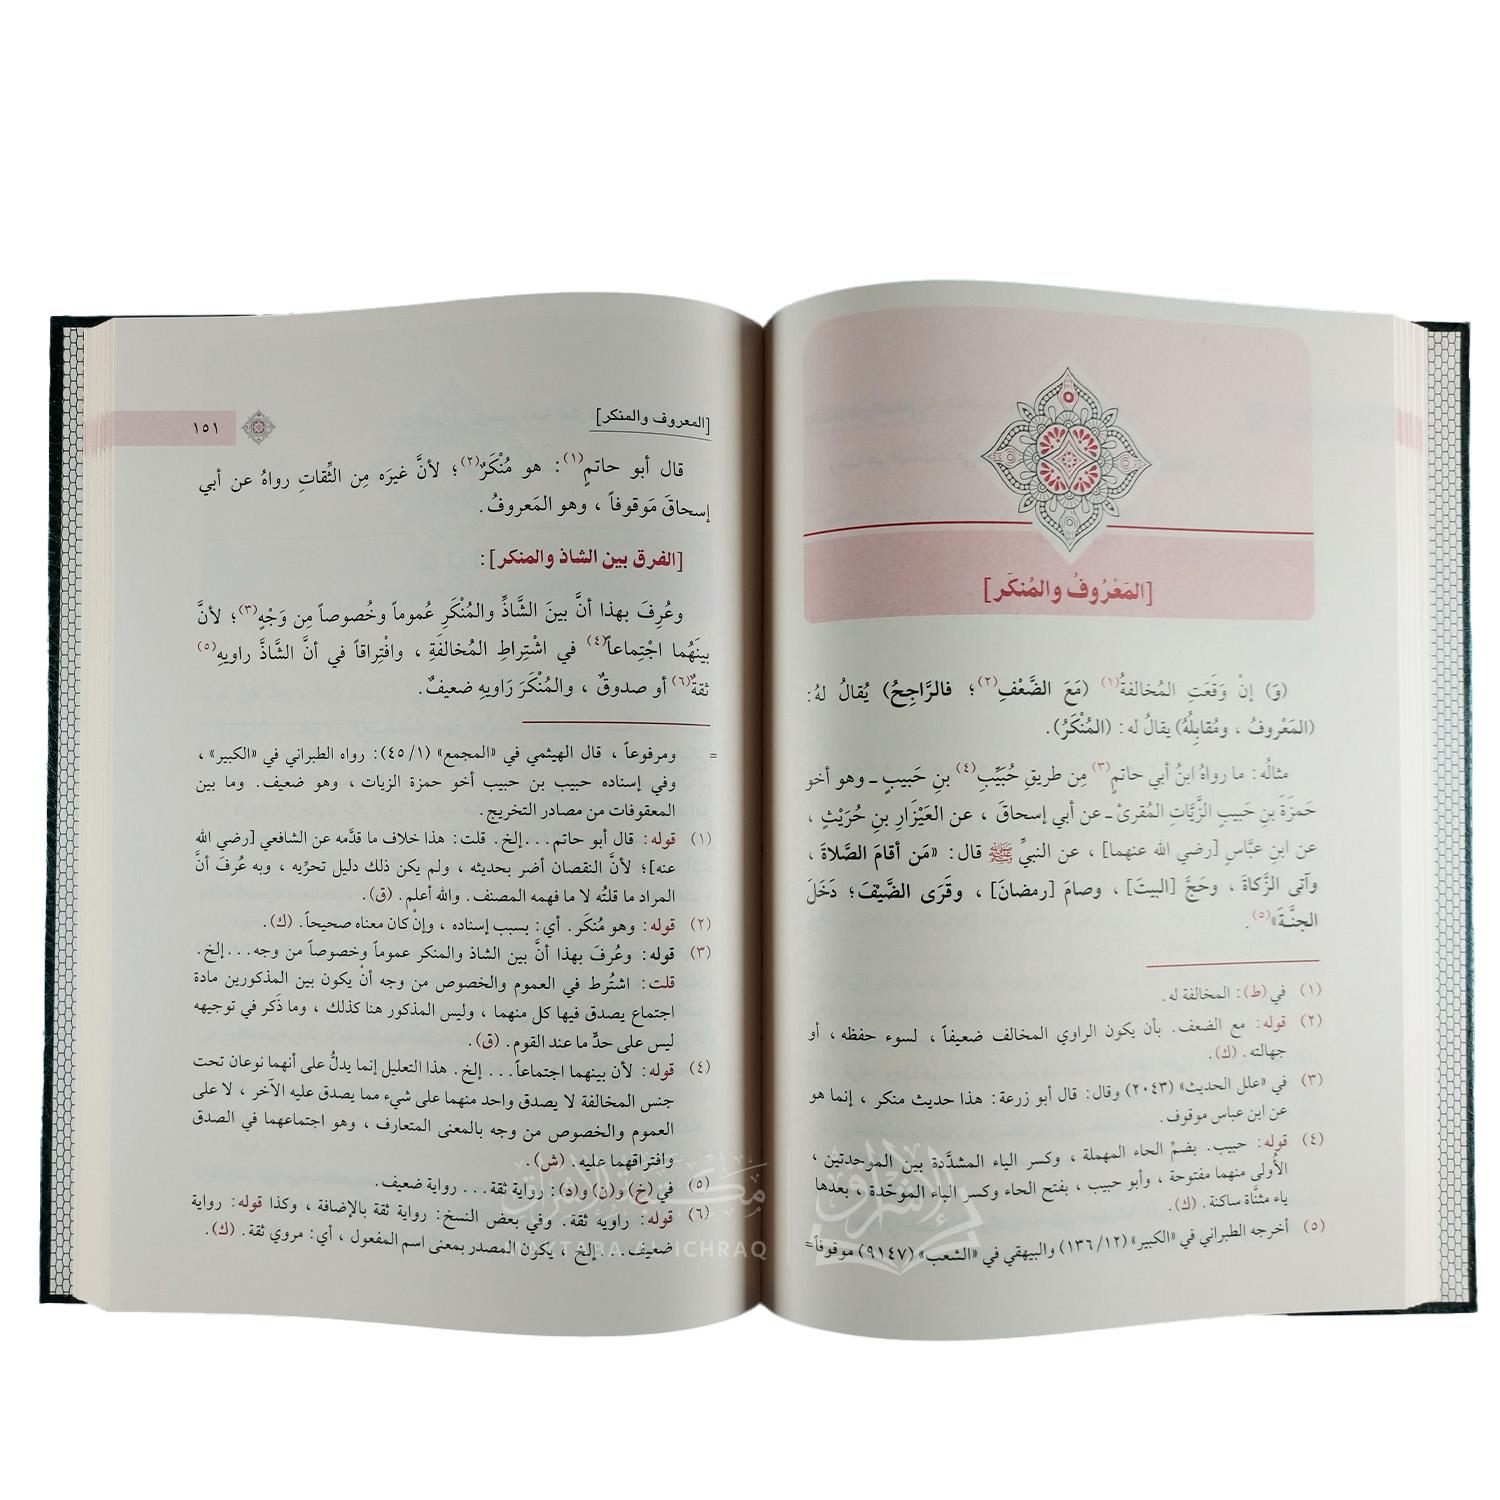 [المَعْرُوفُ والمُنكَر]
(وَ) إنْ وَقَعَتِ المُخالفةُ(١) (مَعَ الضَّعْفِ(٢) ؛ فالرَّاجِحُ) يُقالُ لهُ:
(المَعْرُوفُ ، ومُقابِلُهُ) يقالُ له: (المُنْكَرُ).
مثالُه: ما رواهُ ابنُ أبي حاتمٍ(٣) مِن طريقِ حُبَيِّبِ(٤) بنِ حَبيبٍ ـ وهو أخو
حَمزَةَ بنِ حَبيبٍ الزَّيَّاتِ المُقرئ ـ عن أبي إسحاقَ ، عن العَيْزَارِ بنِ حُرَيْثٍ ،
عن ابنِ عبَّاسٍ [رضي الله عنهما] ، عن النبيِّ ﷺ قال: «مَن أقامَ الصَّلاةَ ،
وآتى الزَّكاةَ ، وحَجَّ [البيتَ] ، وصامَ [رمضانَ] ، وقَرَى الضَّيْفَ؛ دَخَلَ
الجنَّةَ»(٥).
(١) في (ط): المخالفة له.
(٢) قوله: مع الضعف. بأن يكون الراوي المخالف ضعيفاً ، لسوء حفظه ، أو
جهالته. (ك).
(٣) في «علل الحديث» (٢٠٤٣) وقال: قال أبو زرعة: هذا حديث منكر ، إنما هو
عن ابن عباس موقوف.
(٤) قوله: حبيب. بضمِّ الحاء المهملة ، وكسر الياء المشدَّدة بين الموحدتين ،
الأولى منهما مفتوحة ، وأبو حبيب ، بفتح الحاء وكسر الباء الموحّدة ، بعدها
ياء مثنَّاة ساكنة. (ك).
(٥) أخرجه الطبراني في «الكبير» (١٣٦/١٢) والبيهقي في «الشعب» (٩١٤٧) موقوفاً=
[المعروف والمنكر]
١٥١
قال أبو حاتمٍ(١): هو مُنْكَرٌ(٢) ؛ لأنَّ غيرَه مِن الثِّقاتِ رواهُ عن أبي
إسحاقَ مَوقوفاً ، وهو المَعروفُ.
[الفرق بين الشاذ والمنكر]:
وعُرِفَ بهذا أنَّ بينَ الشَّاذِّ والمُنْكَرِ عُموماً وخُصوصاً مِن وَجْهٍ(٣)؛ لأنَّ
بينَهُما اجْتِماعاً(٤) في اشْتِراطِ المُخالفَةِ ، وافْتِراقاً في أنَّ الشَّاذَّ راويهِ(٥)
ثقةٌ(٦) أو صدوقٌ ، والمُنْكَرَ رَاويهِ ضعيفٌ.
= ومرفوعاً ، قال الهيثمي في «المجمع» (٤٥/١): رواه الطبراني في «الكبير» ،
وفي إسناده حبيب بن حبيب أخو حمزة الزيات ، وهو ضعيف. وما بين
المعقوفات من مصادر التخريج.
(١) قوله: قال أبو حاتم...إلخ. قلت: هذا خلاف ما قدَّمه عن الشافعي [رضي الله
عنه]؛ لأنَّ النقصان أضر بحديثه ، ولم يكن ذلك دليل تحرِّيه ، وبه عُرفَ أنَّ
المراد ما قلتُه لا ما فهمه المصنف. والله أعلم. (ق).
(٢) قوله: وهو مُنكَر. أي: بسبب إسناده ، وإنْ كان معناه صحيحاً. (ك).
(٣) قوله: وعُرفَ بهذا أنَّ بين الشاذ والمنكر عموماً وخصوصاً من وجه...إلخ.
قلت: اشتُرط في العموم والخصوص من وجه أنْ يكون بين المذكورين مادة
اجتماع يصدق فيها كل منهما ، وليس المذكور هنا كذلك ، وما ذَكر في توجيهه
ليس على حدِّ ما عند القوم. (ق).
(٤) قوله: لأن بينهما اجتماعاً... إلخ. هذا التعليل إنما يدلُّ على أنهما نوعان تحت
جنس المخالفة لا يصدق واحد منهما على شيء مما يصدق عليه الآخر ، لا على
العموم والخصوص من وجه بالمعنى المتعارف ، وهو اجتماعهما في الصدق
وافتراقهما عليه. (ش).
(٥) في (خ) و(ن) و(د): رواية ثقة... رواية ضعيف.
(٦) قوله: راويه ثقة. وفي بعض النسخ: رواية ثقة بالإضافة ، وكذا قوله: رواية
ضعيف... إلخ ، يكون المصدر بمعنى اسم المفعول ، أي: مروي ثقة. (ك).
مكتبة الإشراق
MAKTABA AL-ICHRAQ
الإشراق